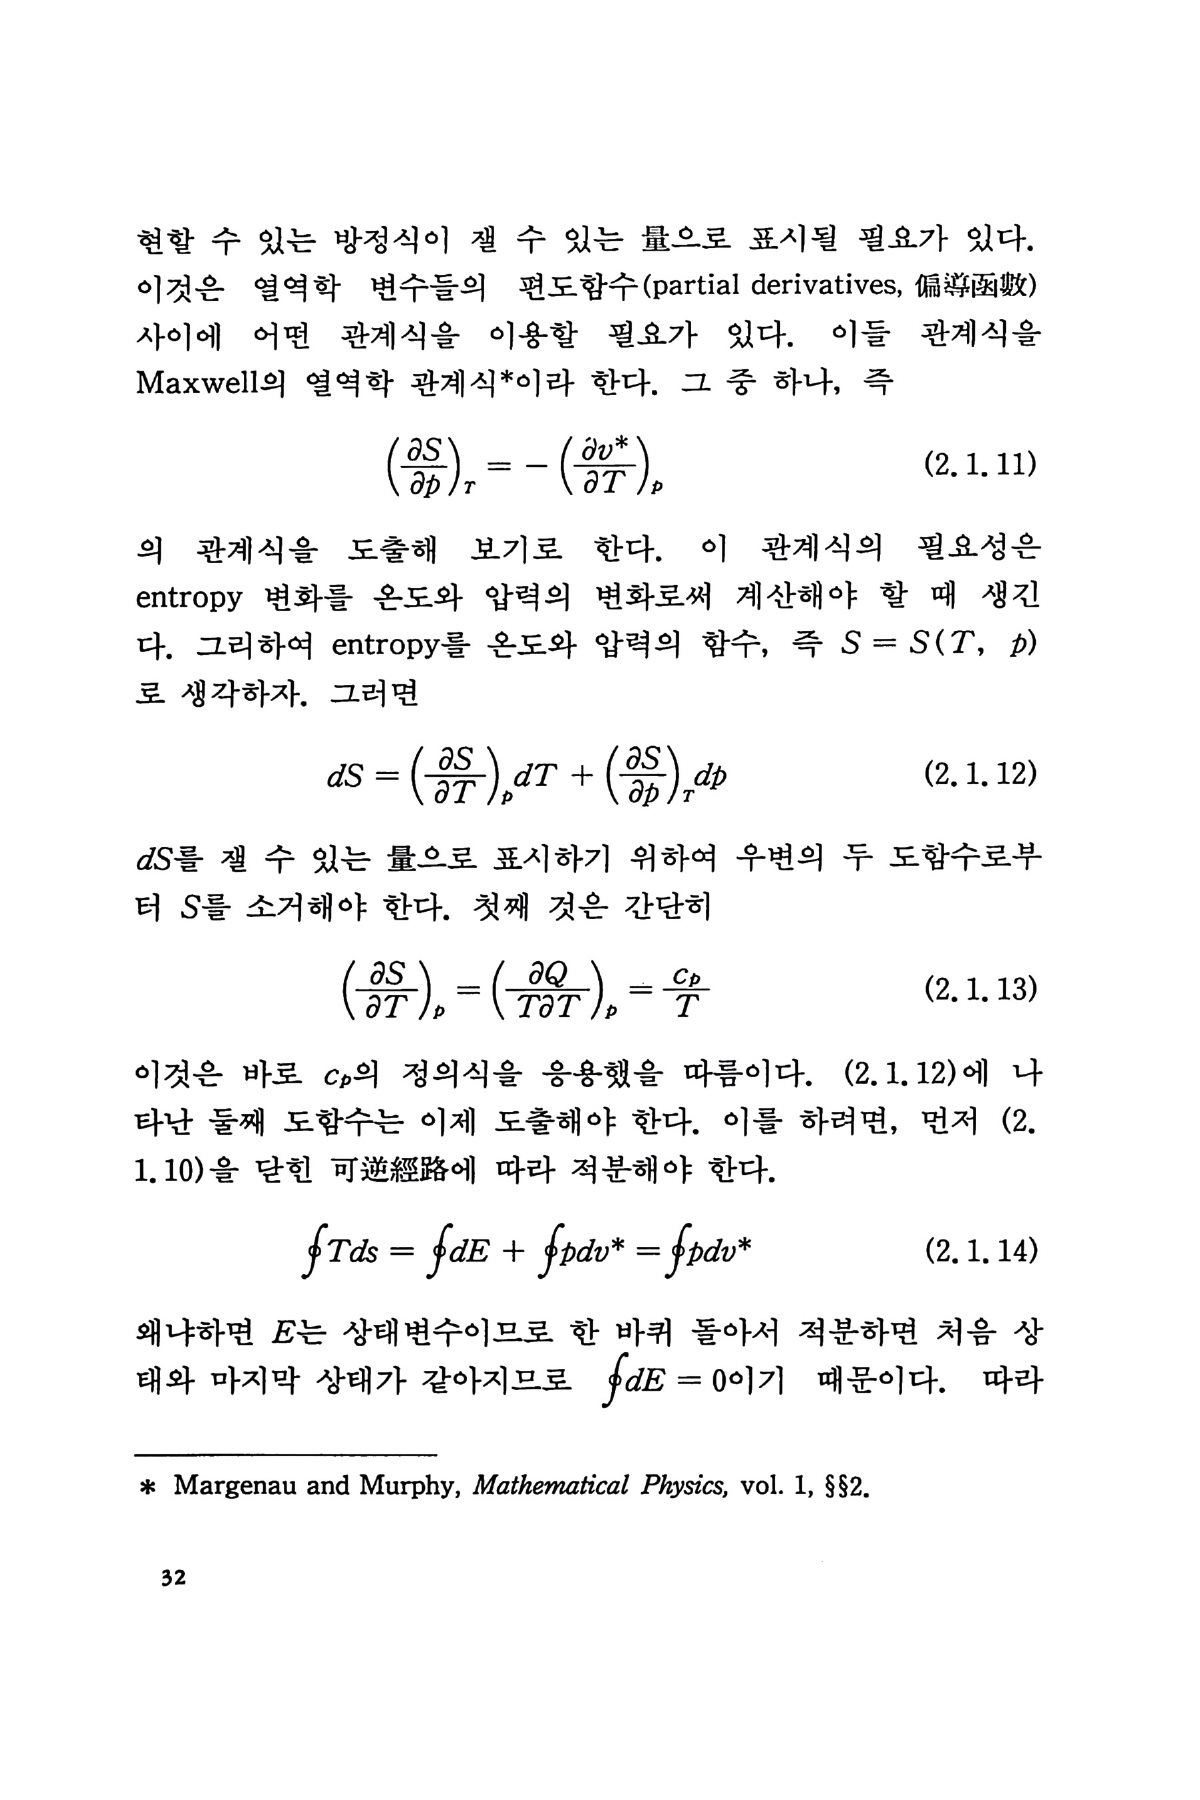 현할 수 있는 방정식이 잴 수 있는 量으로 표시될 필요가 있다.
이것은 열역학 변수들의 편도함수(partial derivatives, 偏導函數)
사이에 어떤 관계식을 이용할 필요가 있다. 이들 관계식을
Maxwell의 열역학 관계식*이라 한다. 그 중 하나, 즉
(∂S/∂p)_T = − (∂v*/∂T)_p (2.1.11)
의 관계식을 도출해 보기로 한다. 이 관계식의 필요성은
entropy 변화를 온도와 압력의 변화로써 계산해야 할 때 생긴
다. 그리하여 entropy를 온도와 압력의 함수, 즉 S = S(T, p)
로 생각하자. 그러면
dS = (∂S/∂T)_p dT + (∂S/∂p)_T dp (2.1.12)
dS를 잴 수 있는 量으로 표시하기 위하여 우변의 두 도함수로부
터 S를 소거해야 한다. 첫째 것은 간단히
(∂S/∂T)_p = (∂Q/T∂T)_p = c_p/T (2.1.13)
이것은 바로 c_p의 정의식을 응용했을 따름이다. (2.1.12)에 나
타난 둘째 도함수는 이제 도출해야 한다. 이를 하려면, 먼저 (2.
1.10)을 닫힌 可逆經路에 따라 적분해야 한다.
∮Tds = ∮dE + ∮pdv* = ∮pdv* (2.1.14)
왜냐하면 E는 상태변수이므로 한 바퀴 돌아서 적분하면 처음 상
태와 마지막 상태가 같아지므로 ∮dE = 0이기 때문이다. 따라
* Margenau and Murphy, Mathematical Physics, vol. 1, §§2.
32